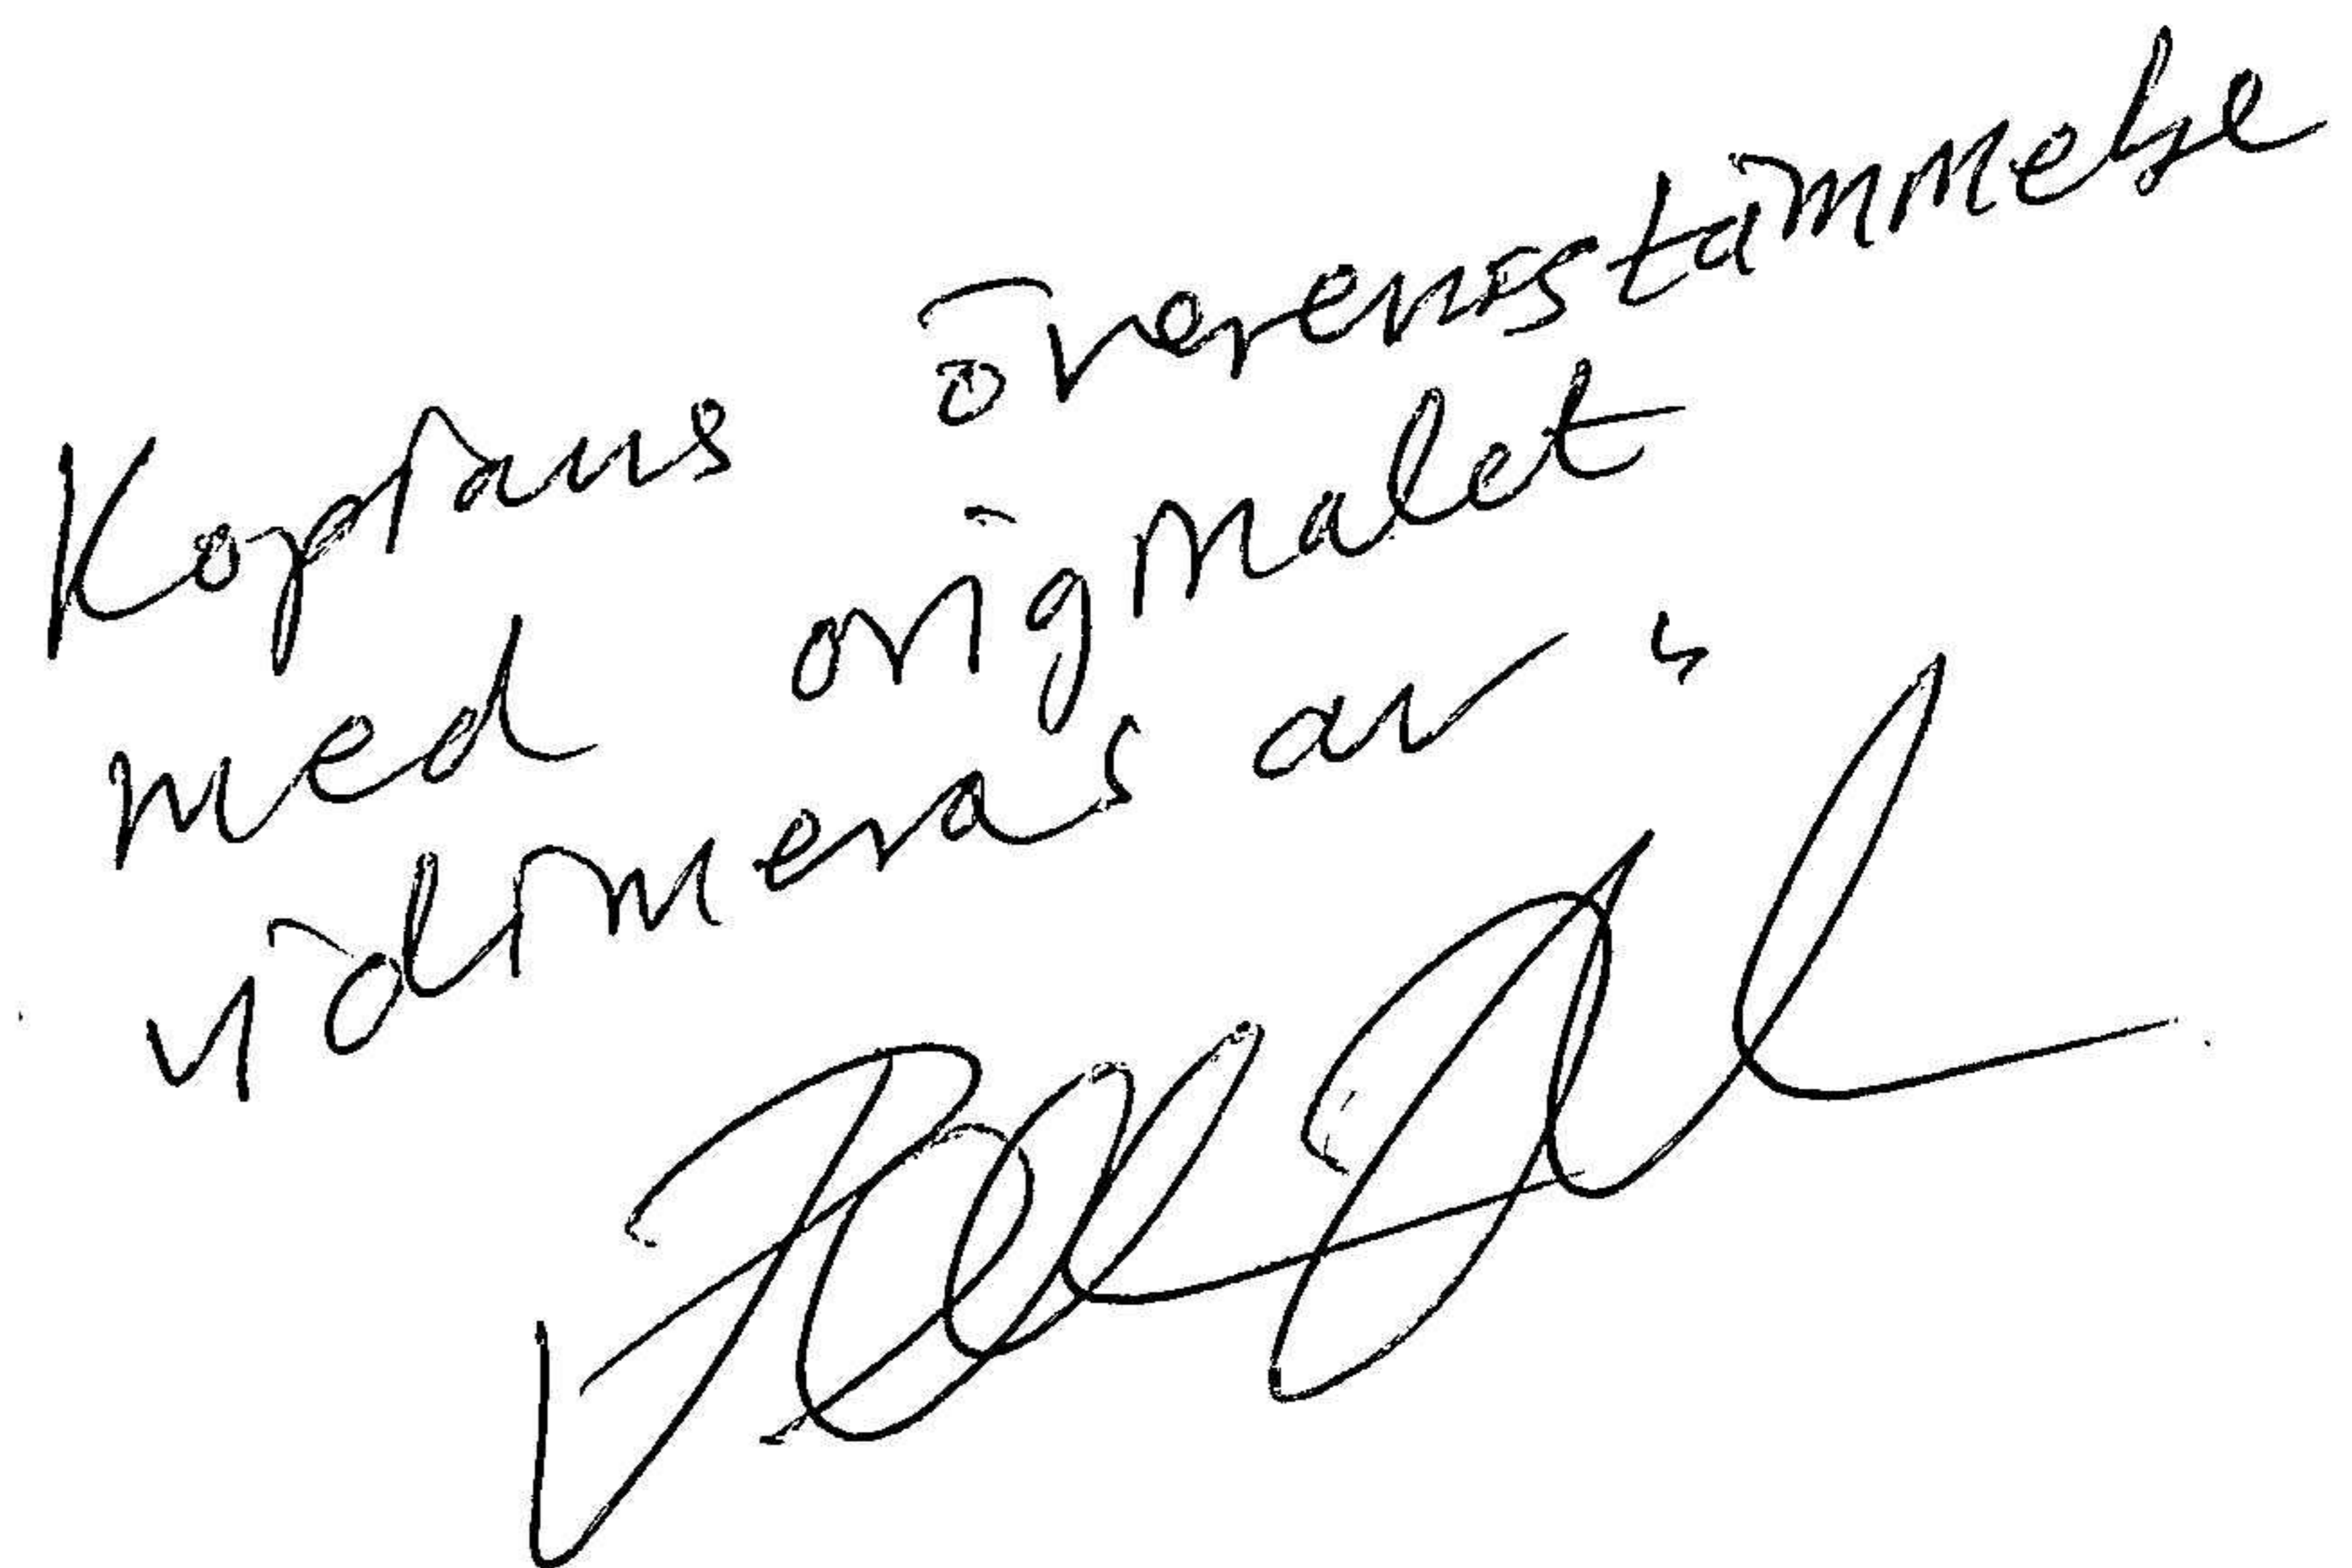 Kopians överensstämmelse
med originalet
vidimeras av: